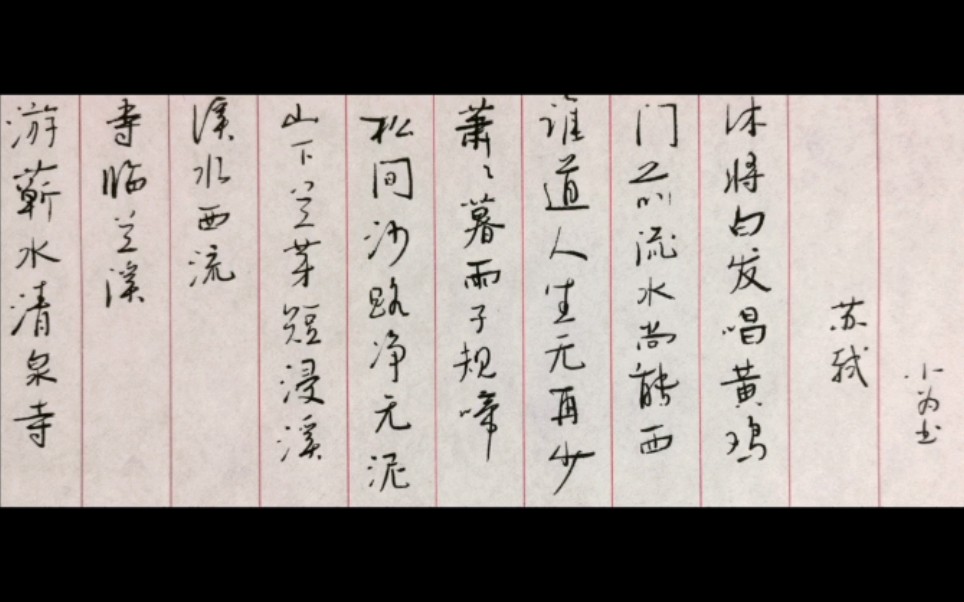 游蕲水清泉寺
寺临兰溪
溪水西流
山下兰芽短浸溪
松间沙路净无泥
萧々暮雨子规啼
谁道人生无再少
门前流水尚能西
休将白发唱黄鸡
苏轼
小为书